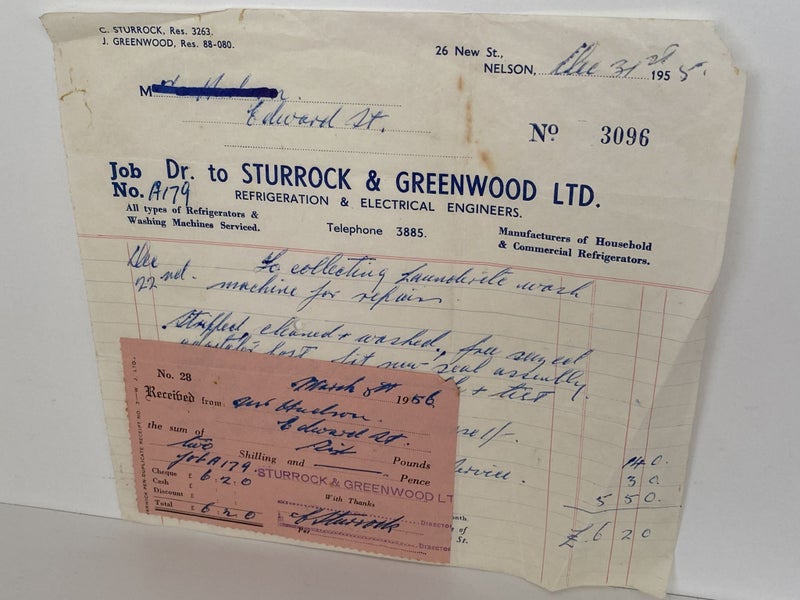 C. STURROCK, Res. 3263.
J. GREENWOOD, Res. 88-080.
26 New St.,
NELSON, Dec 31st 1955.
M Hudson.
Edward St.
No 3096
Job Dr. to STURROCK & GREENWOOD LTD.
No. A179
REFRIGERATION & ELECTRICAL ENGINEERS.
All types of Refrigerators &
Washing Machines Serviced.
Telephone 3885.
Manufacturers of Household
& Commercial Refrigerators.
Dec
22nd. To collecting Launderite wash
machine for repairs
Stripped, cleaned & washed, free seized
fit new seal assembly
& test
Service.
14 0.
3 0.
5 5 0.
£ 6 2 0
No. 28
March 8th 1956
Received from Mrs Hudson.
Edward St.
the sum of Six Pounds
two Shilling and Pence
Job A179.
Cheque £
Cash £ 6. 2. 0
Discount £
Total £ 6 2 0
STURROCK & GREENWOOD LT
With Thanks
C Sturrock
DIRECTOR
Per
DIRECTOR